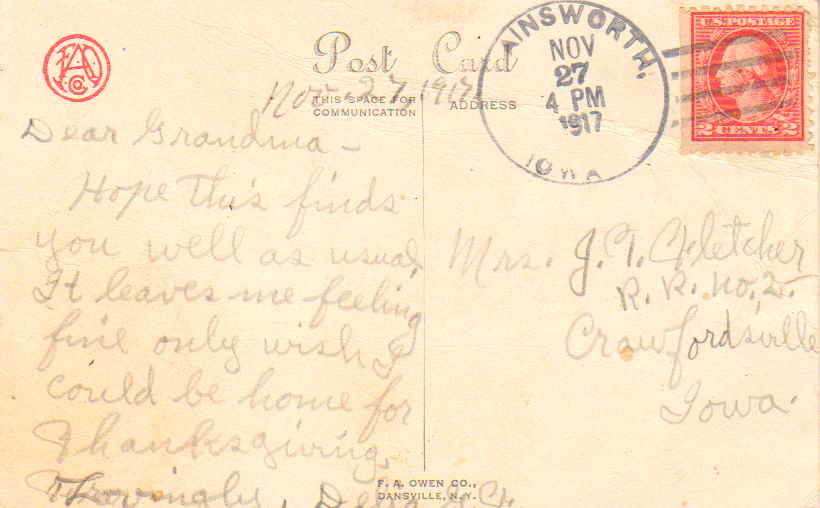 FAO Co.
Post Card
THIS SPACE FOR COMMUNICATION
ADDRESS
AINSWORTH,
NOV
27
4 PM
1917
IOWA
U.S. POSTAGE
2 CENTS 2
Nov. 27, 1917
Dear Grandma —
Hope this finds
you well as usual.
It leaves me feeling
fine only wish I
could be home for
Thanksgiving.
Lovingly,
Mrs. J. T. Fletcher
R. R. No. 2.
Crawfordsville
Iowa.
F. A. OWEN CO.,
DANSVILLE, N.Y.